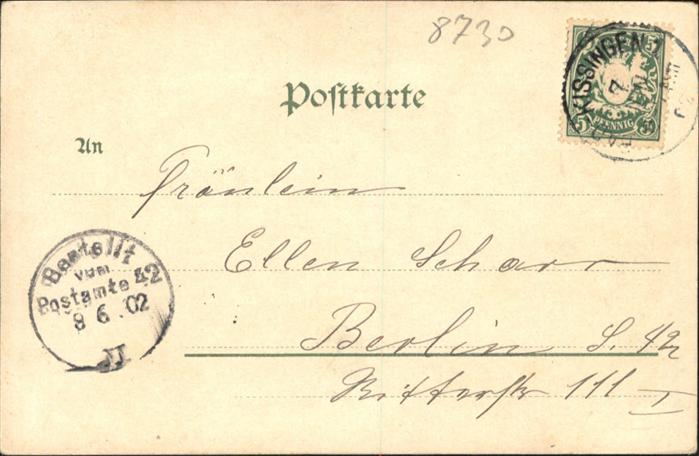 8730
5
KISSINGEN
7
PFENNIG
5
Postkarte
An
Fräulein
Ellen Scharr
Bestellt
vom
Postamte 42
8 6. 02
Berlin S. 42
Ritterstr 111 I